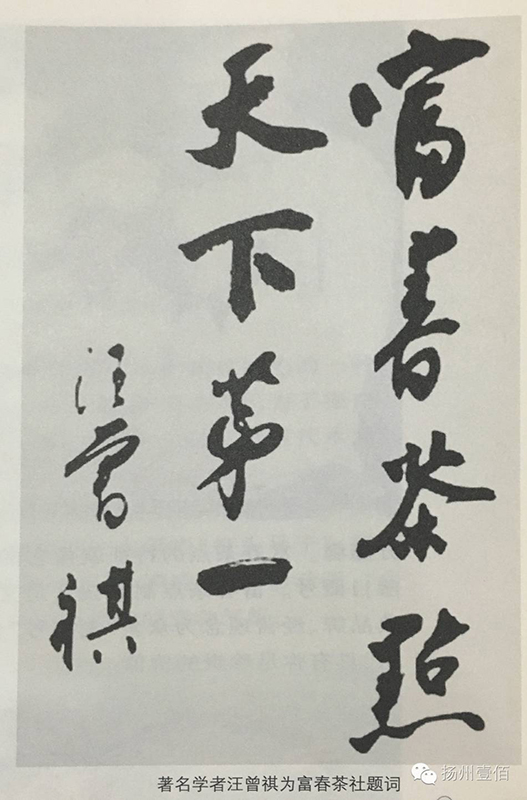 富春茶點
天下第一
汪曾祺
著名学者汪曾祺为富春茶社题词
扬州壹佰